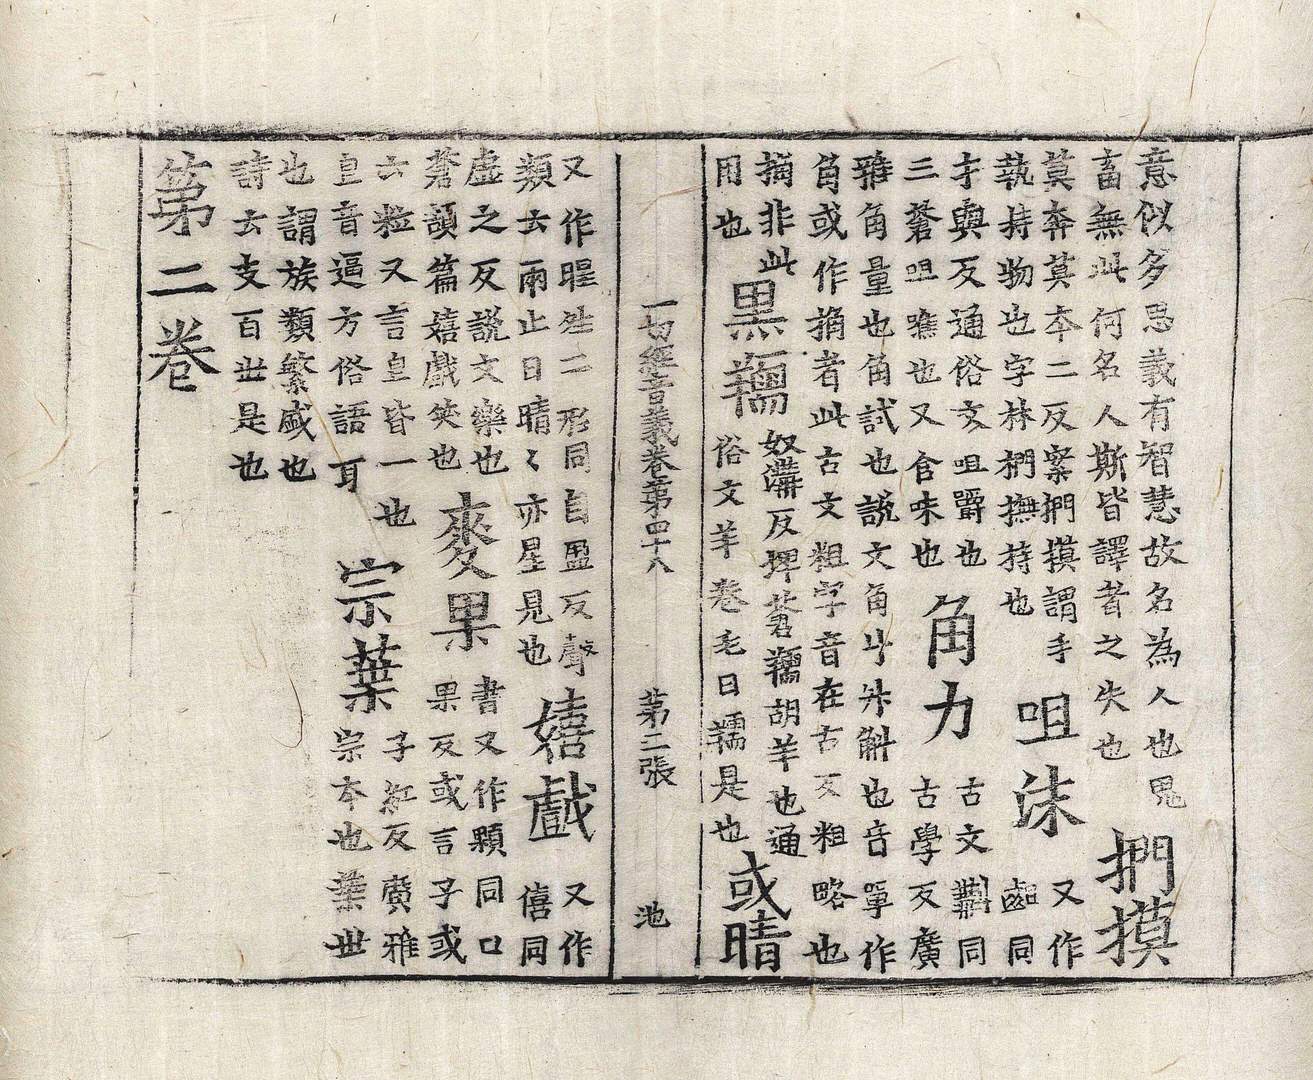 意似多思義有智慧故名為人也鬼
畜無此何名人斯皆譯者之失也
捫摸
莫奔莫本二反案捫摸謂手
執持物也字林捫撫持也
咀沫
又作
齟同
才與反通俗文咀嚼也
三蒼咀噍也又含味也
角力
古文同
古學反廣
雅角量也角試也說文角斗升斛也音單作
角或作捔者此古文粗字音在古反粗略也
捔非此
用也
黑羺
奴溝反埤蒼羺胡羊也通
俗文羊卷毛曰羺是也
或晴
一切經音義卷第四十八 第二張 池
又作暒殅二形同自盈反聲
類云雨止日晴〻亦星見也
嬉戲
又作
僖同
虛之反說文樂也
蒼頡篇嬉戲笑也
麥果
書又作顆同口
果反或言子或
云粒又言皇皆一也
皇音逼方俗語耳
宗葉
子紅反廣雅
宗本也葉世
也謂族類繁盛也
詩云支百世是也
第二卷